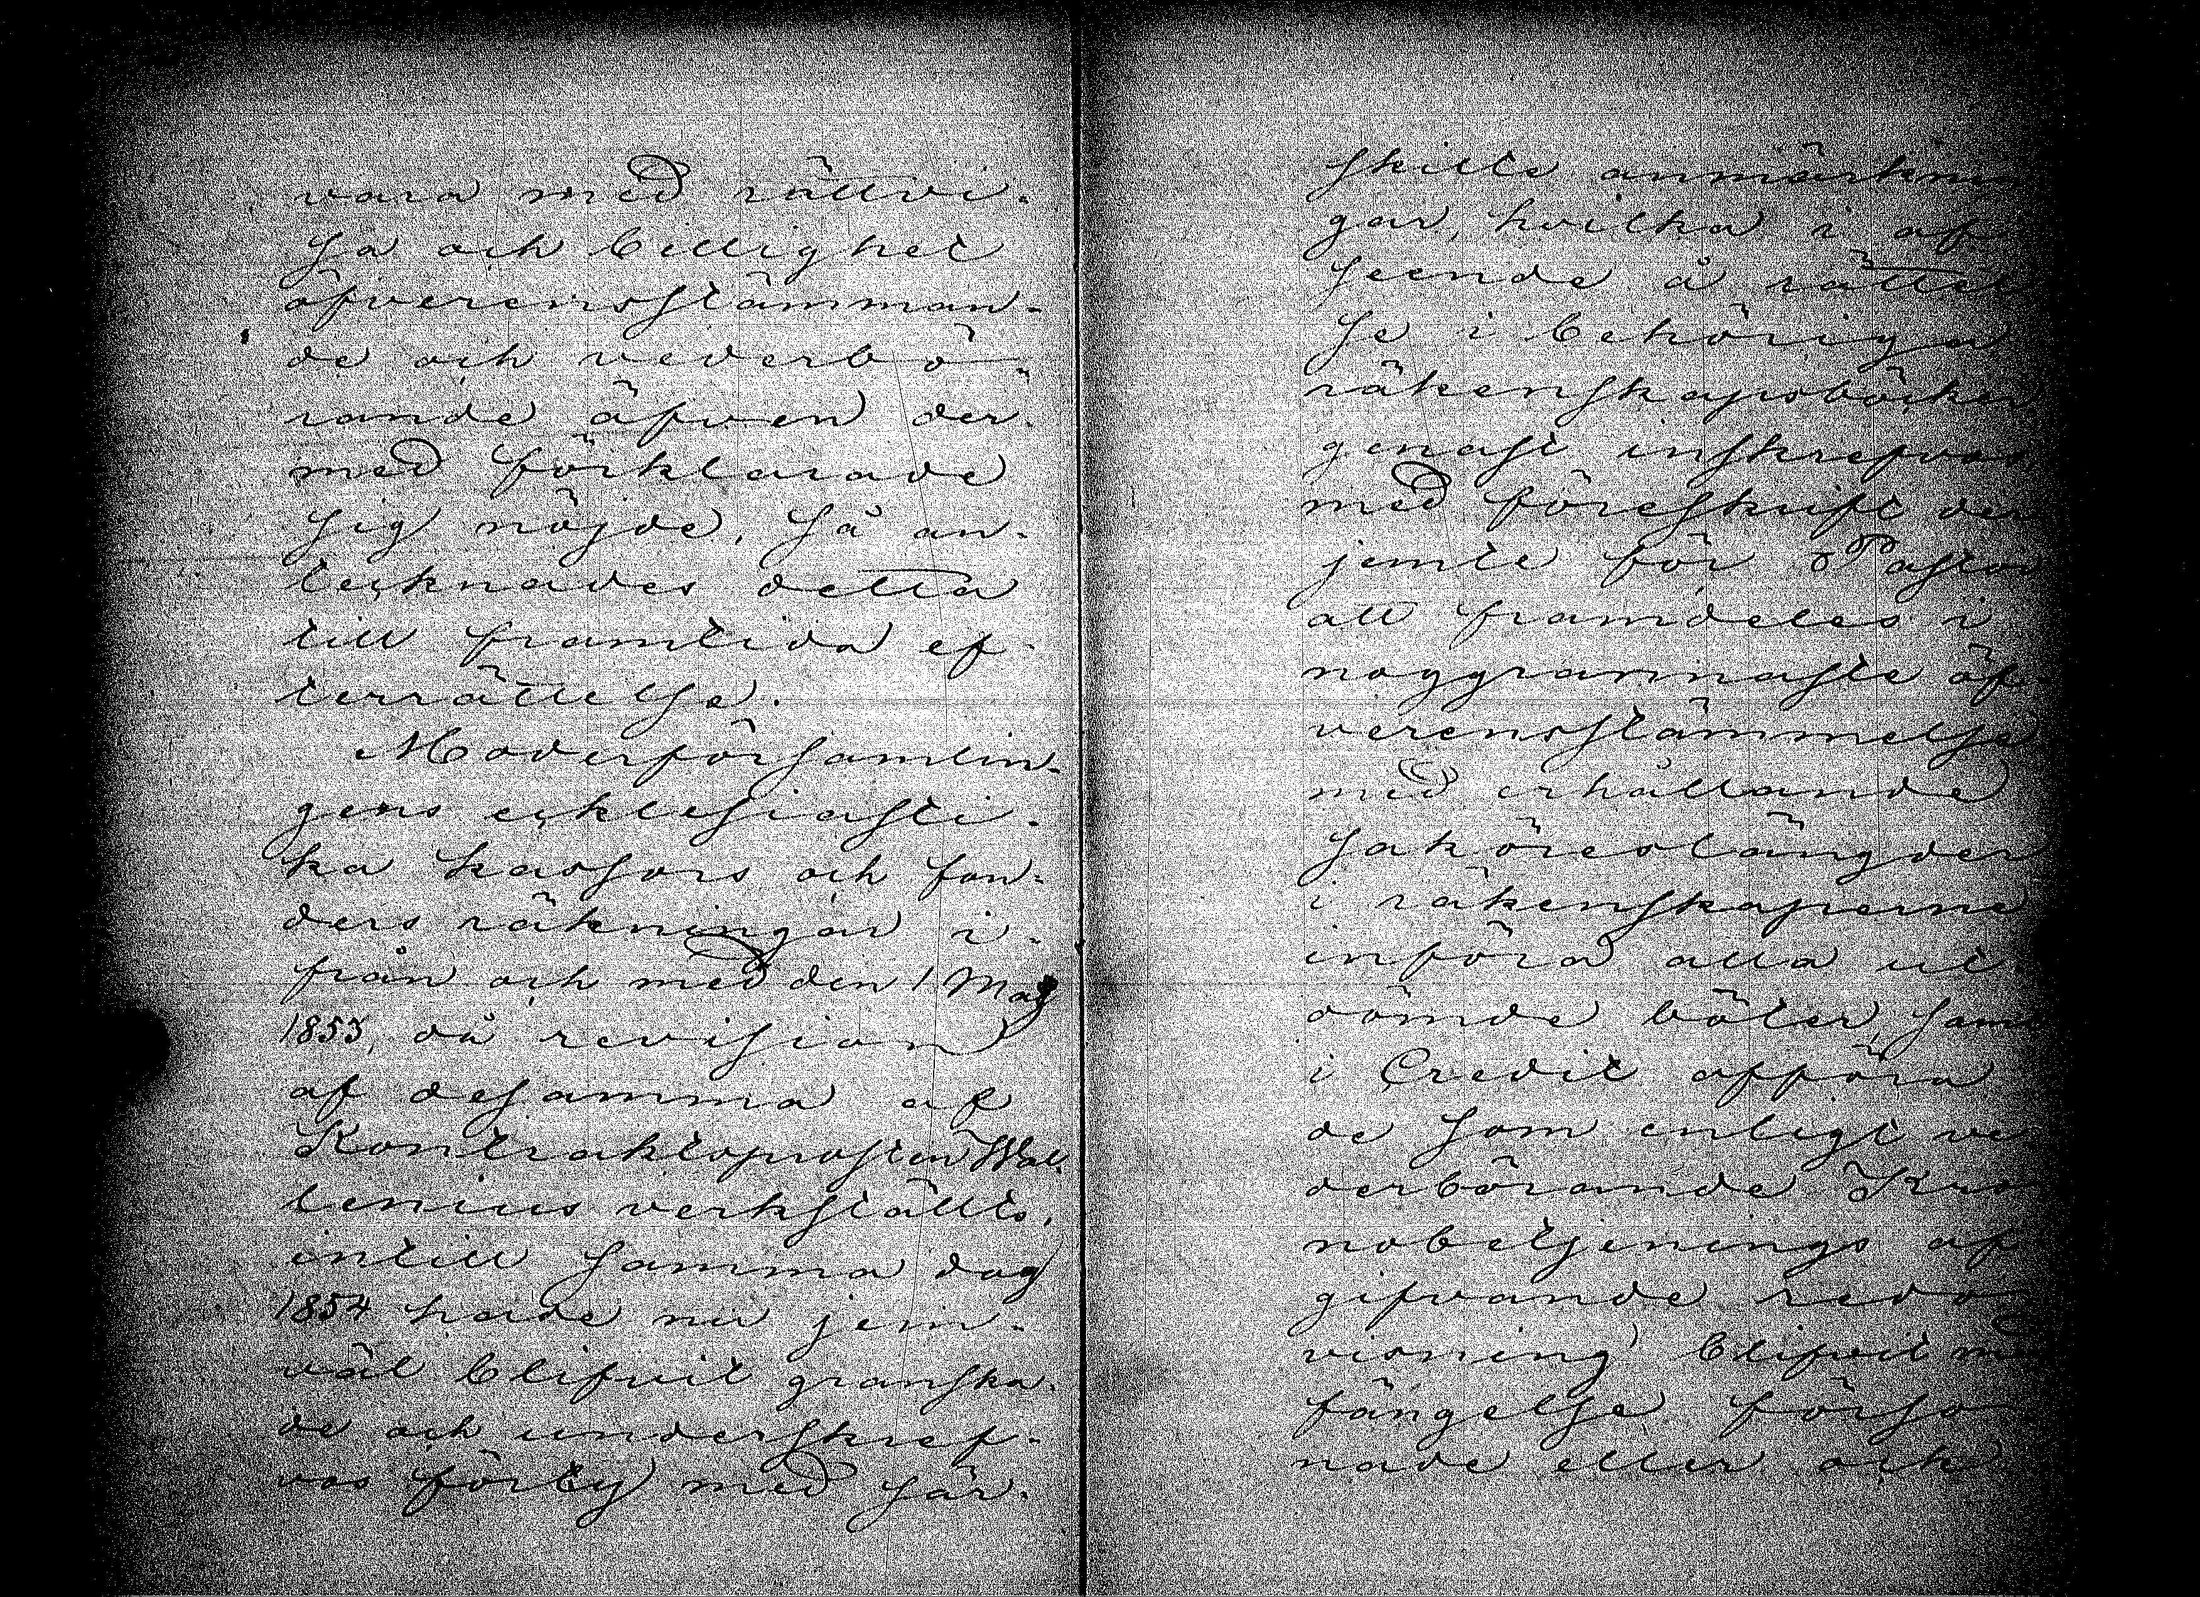 vara med rättvi-
sa och billighet
öfverensstämman-
de och vederbö-
rande äfven der-
med förklarade
sig nöjde, så an-
tecknades detta
till framtida ef-
terrättelse.
Moderförsamlin-
gens ecklesiasti-
ka kassors och fon-
ders räkningar i-
från och med den 1 Maj
1853, då revision
af desamma af
Kontraktsprosten Wal-
lenius verkställts,
intill samma dag
1854 hade nu jem-
väl blifvit granska-
de och underskref-
vos förty med sär-
skilte anmärknin
gar, hvilka i af
seende å rättel
se i behöriga
räkenskapsböcker
genast inskrefvos,
med föreskrift der
jemte för Pastor
att framdeles i
noggrannaste öf
verensstämmelse
med erhållande
saköreslängder
i räkenskaperne
införa alla ut
dömde böter, samt
i Credit afföra
de som enligt ve
derbörande Kro
nobetjenings af
gifvande redo
visning blifvit m
fängelse förso
nade eller ock